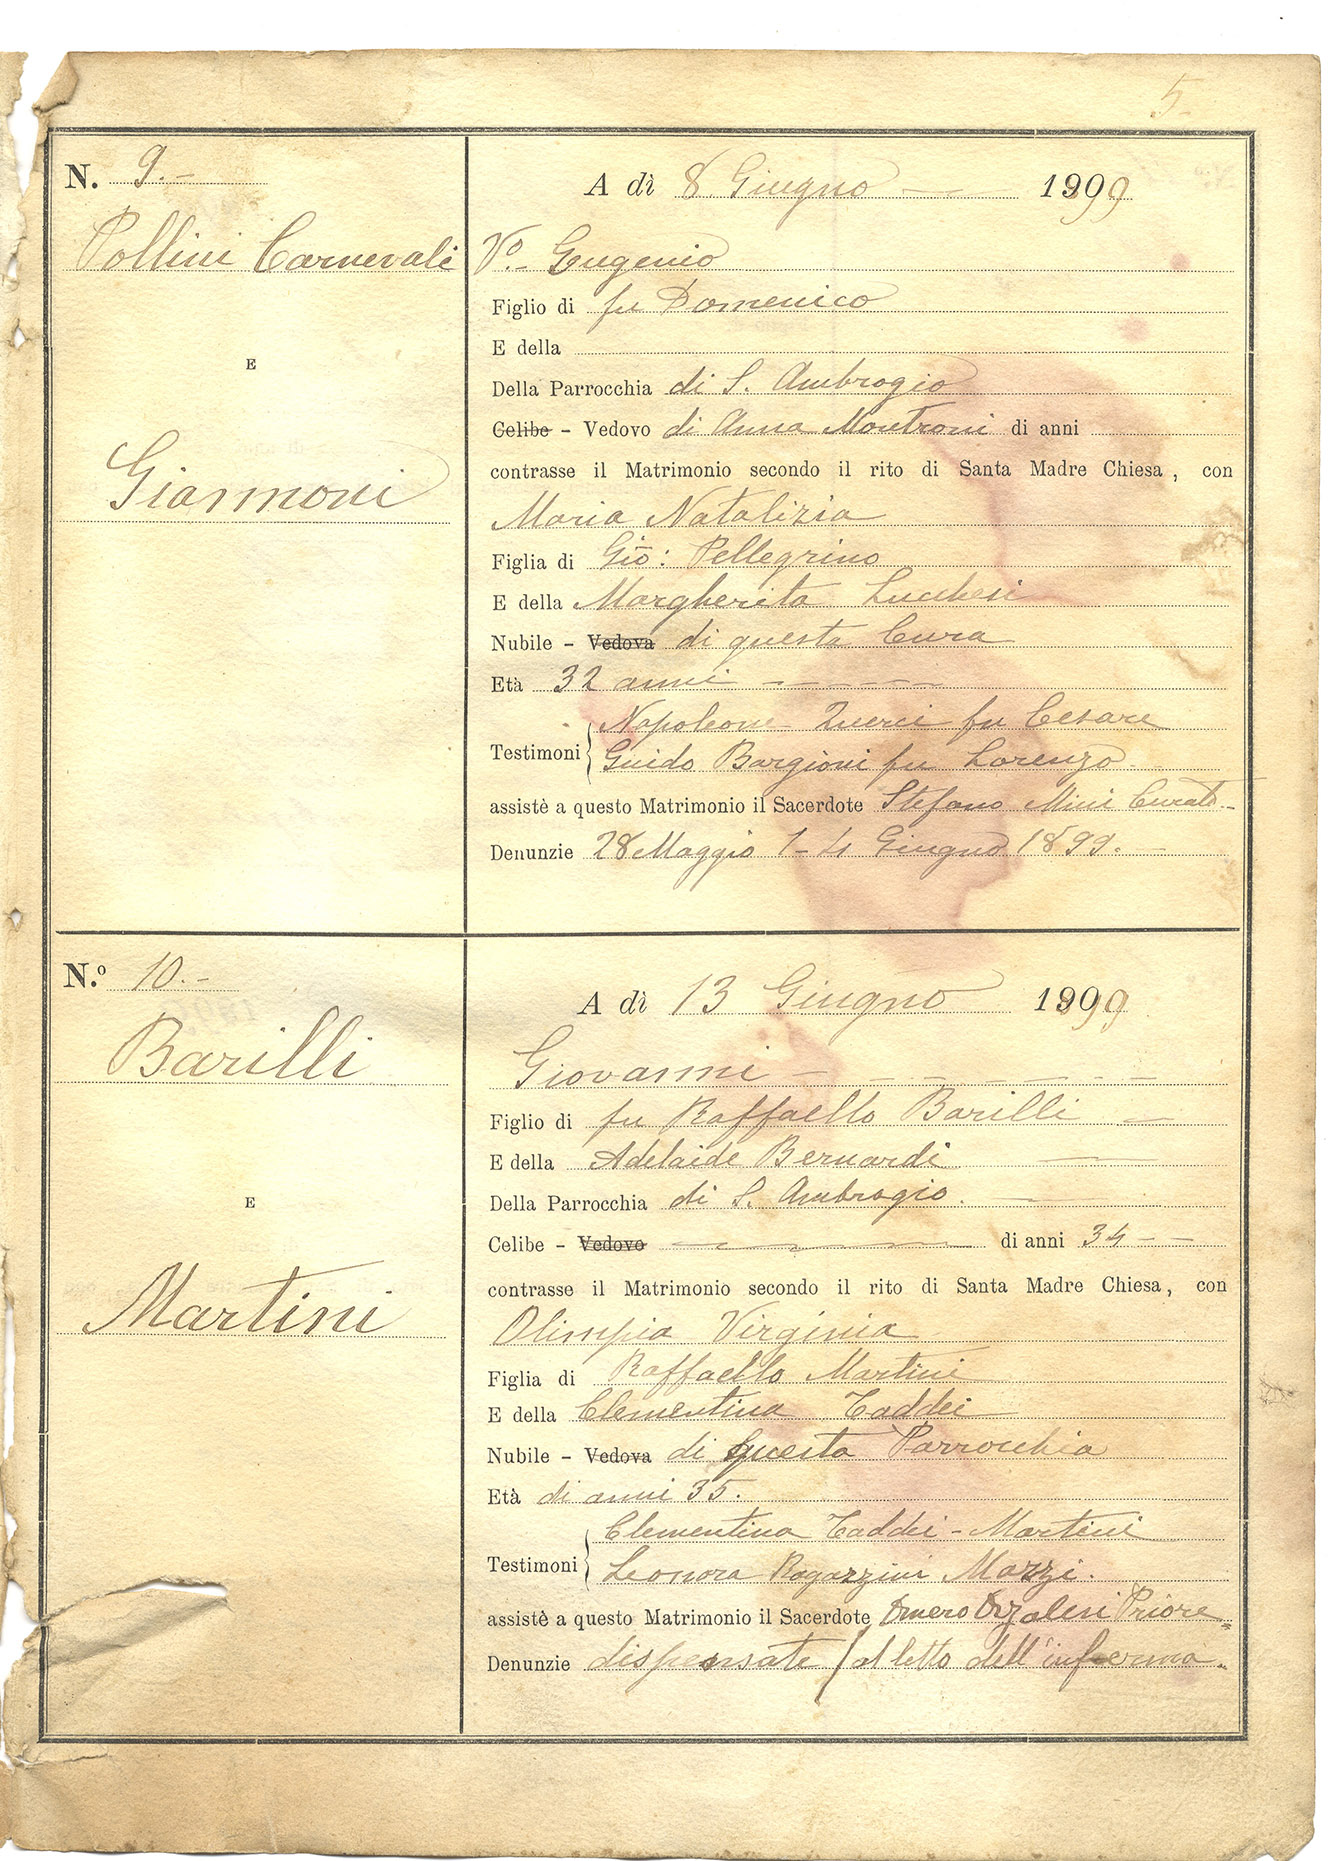 5
N. 9.-
Pollini Carnevali
E
Giannoni
A dì 8 Giugno 1899
Vo.- Eugenio
Figlio di fu Domenico
E della
Della Parrocchia di S. Ambrogio
Celibe - Vedovo di Anna Montroni di anni
contrasse il Matrimonio secondo il rito di Santa Madre Chiesa, con
Maria Natalizia
Figlia di Gio: Pellegrino
E della Margherita Lucchesi
Nubile - Vedova di questa Cura
Età 32 anni
Testimoni Napoleone fu Cesare
Guido Bargioni fu Lorenzo
assistè a questo Matrimonio il Sacerdote Stefano Mini Curato
Denunzie 28 Maggio 1-4 Giugno 1899.-
N.o 10.-
Barilli
E
Martini
A dì 13 Giugno 1899
Giovanni
Figlio di fu Raffaello Barilli
E della Adelaide Bernardi
Della Parrocchia di S. Ambrogio.
Celibe - Vedovo di anni 34
contrasse il Matrimonio secondo il rito di Santa Madre Chiesa, con
Olimpia Virginia
Figlia di Raffaello Martini
E della Clementina Taddei
Nubile - Vedova di questa Parrocchia
Età di anni 35.
Testimoni Clementina Taddei - Martini
Leonora Ragazzini Mazzi.
assistè a questo Matrimonio il Sacerdote Priore
Denunzie dispensate / al letto dell'inferma.